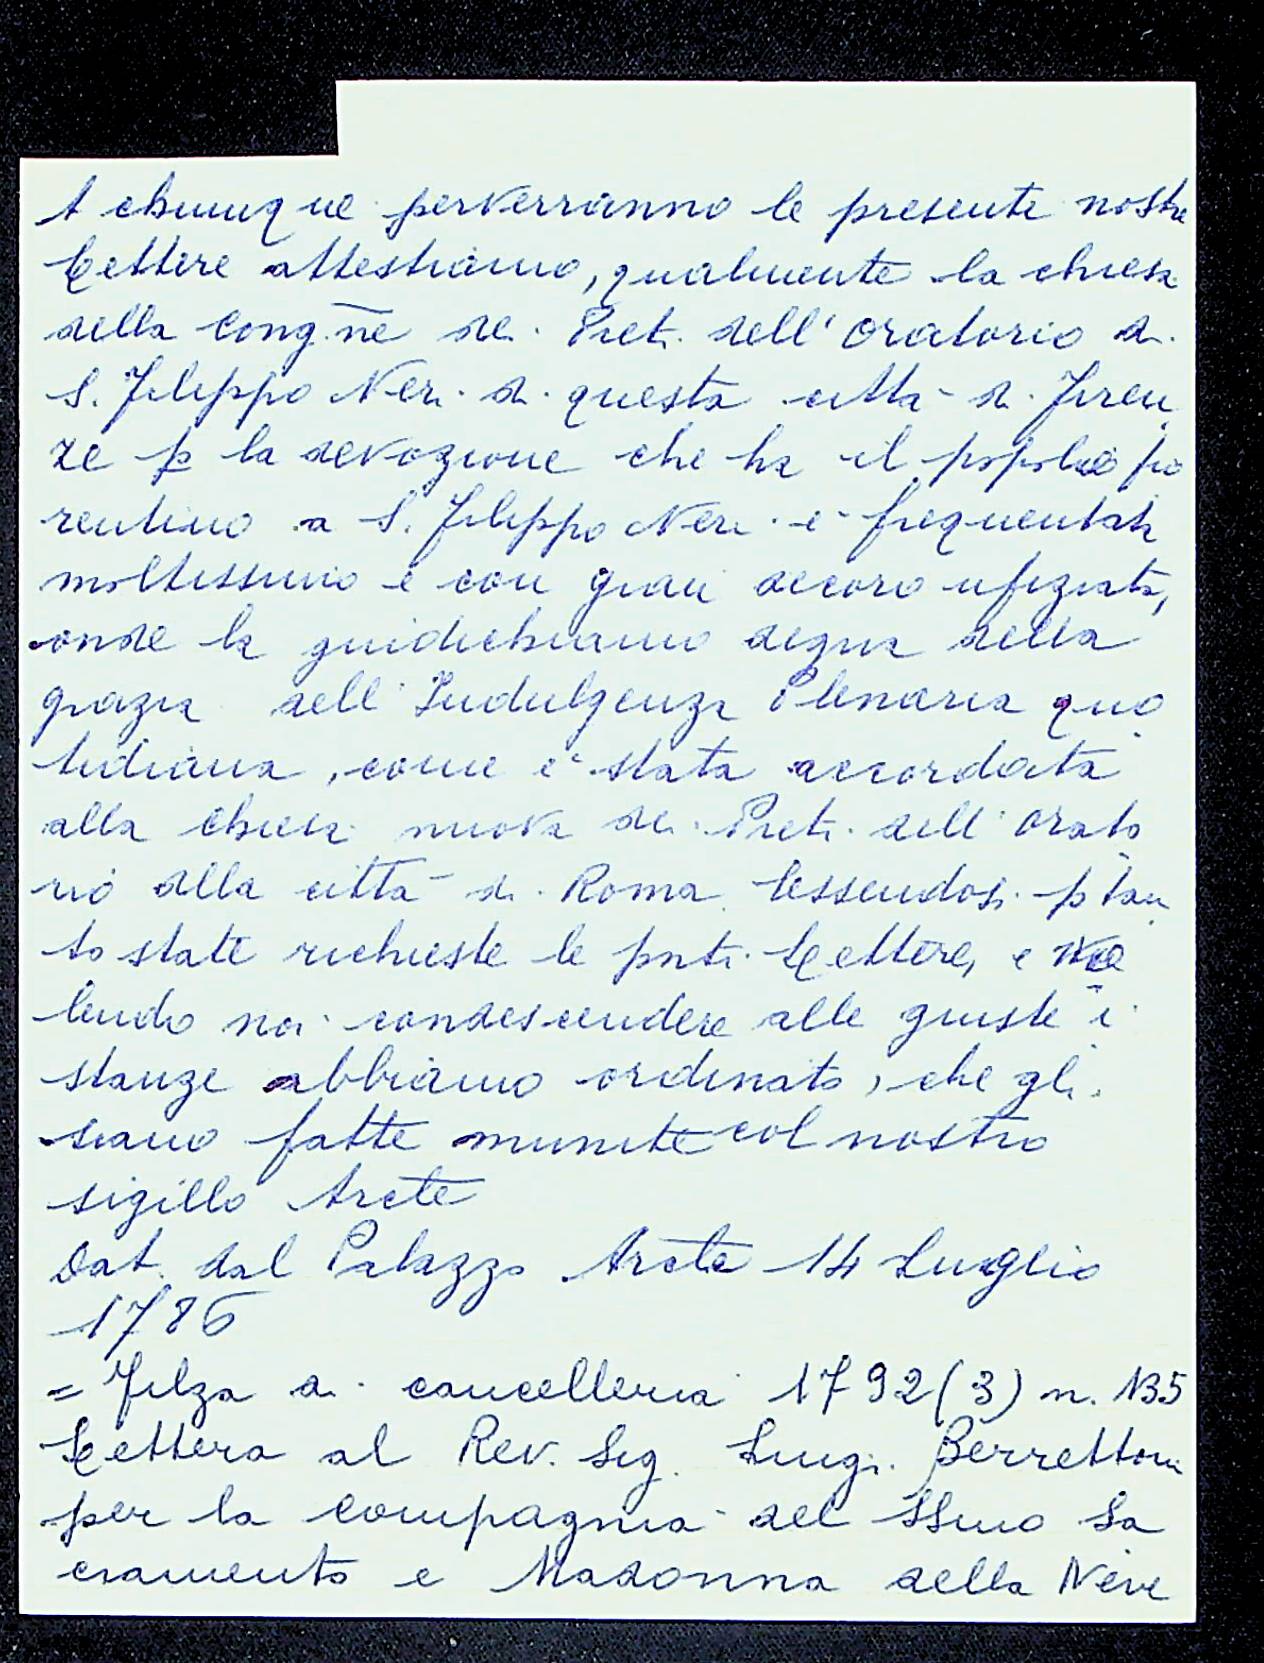 A chiunque perverranno le presente nostre
Lettere attestiamo, qualmente la chiesa
della Cong.ne de. Preti dell' Oratorio di
S. Filippo Neri di questa città di Firen
ze p la devozione che ha il popolo fio
rentino a S. Filippo Neri è frequentata
moltissimo e con gran decoro ufiziata,
onde la giudichiamo degna della
grazia dell' Indulgenza Plenaria quo
tidiana, come è stata accordata
alla chiesa nuova de. Preti dell' Orato
rio alla città di Roma. Essendosi p tan
to state richieste le pnti. Lettere, e vo
lendo noi condescendere alle giuste i
stanze abbiamo ordinato, che gli
siano fatte munite col nostro
sigillo Arcte
Dat. dal Palazzo Arcte 14 Luglio
1786
= Filza di cancelleria 1792 (3) n. 135
Lettera al Rev. Sig. Luigi Berrettoni
per la compagnia del SSmo Sa
cramento e Madonna della Neve